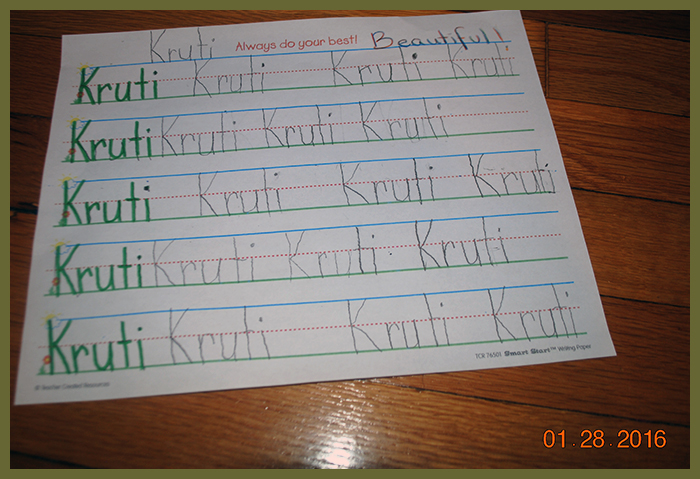 Kruti Always do your best! Beautiful!
Kruti Kruti Kruti Kruti
Kruti Kruti Kruti Kruti
Kruti Kruti Kruti Kruti
Kruti Kruti Kruti Kruti
Kruti Kruti Kruti Kruti
© Teacher Created Resources TCR 76501 Smart Start™ Writing Paper
01.28.2016